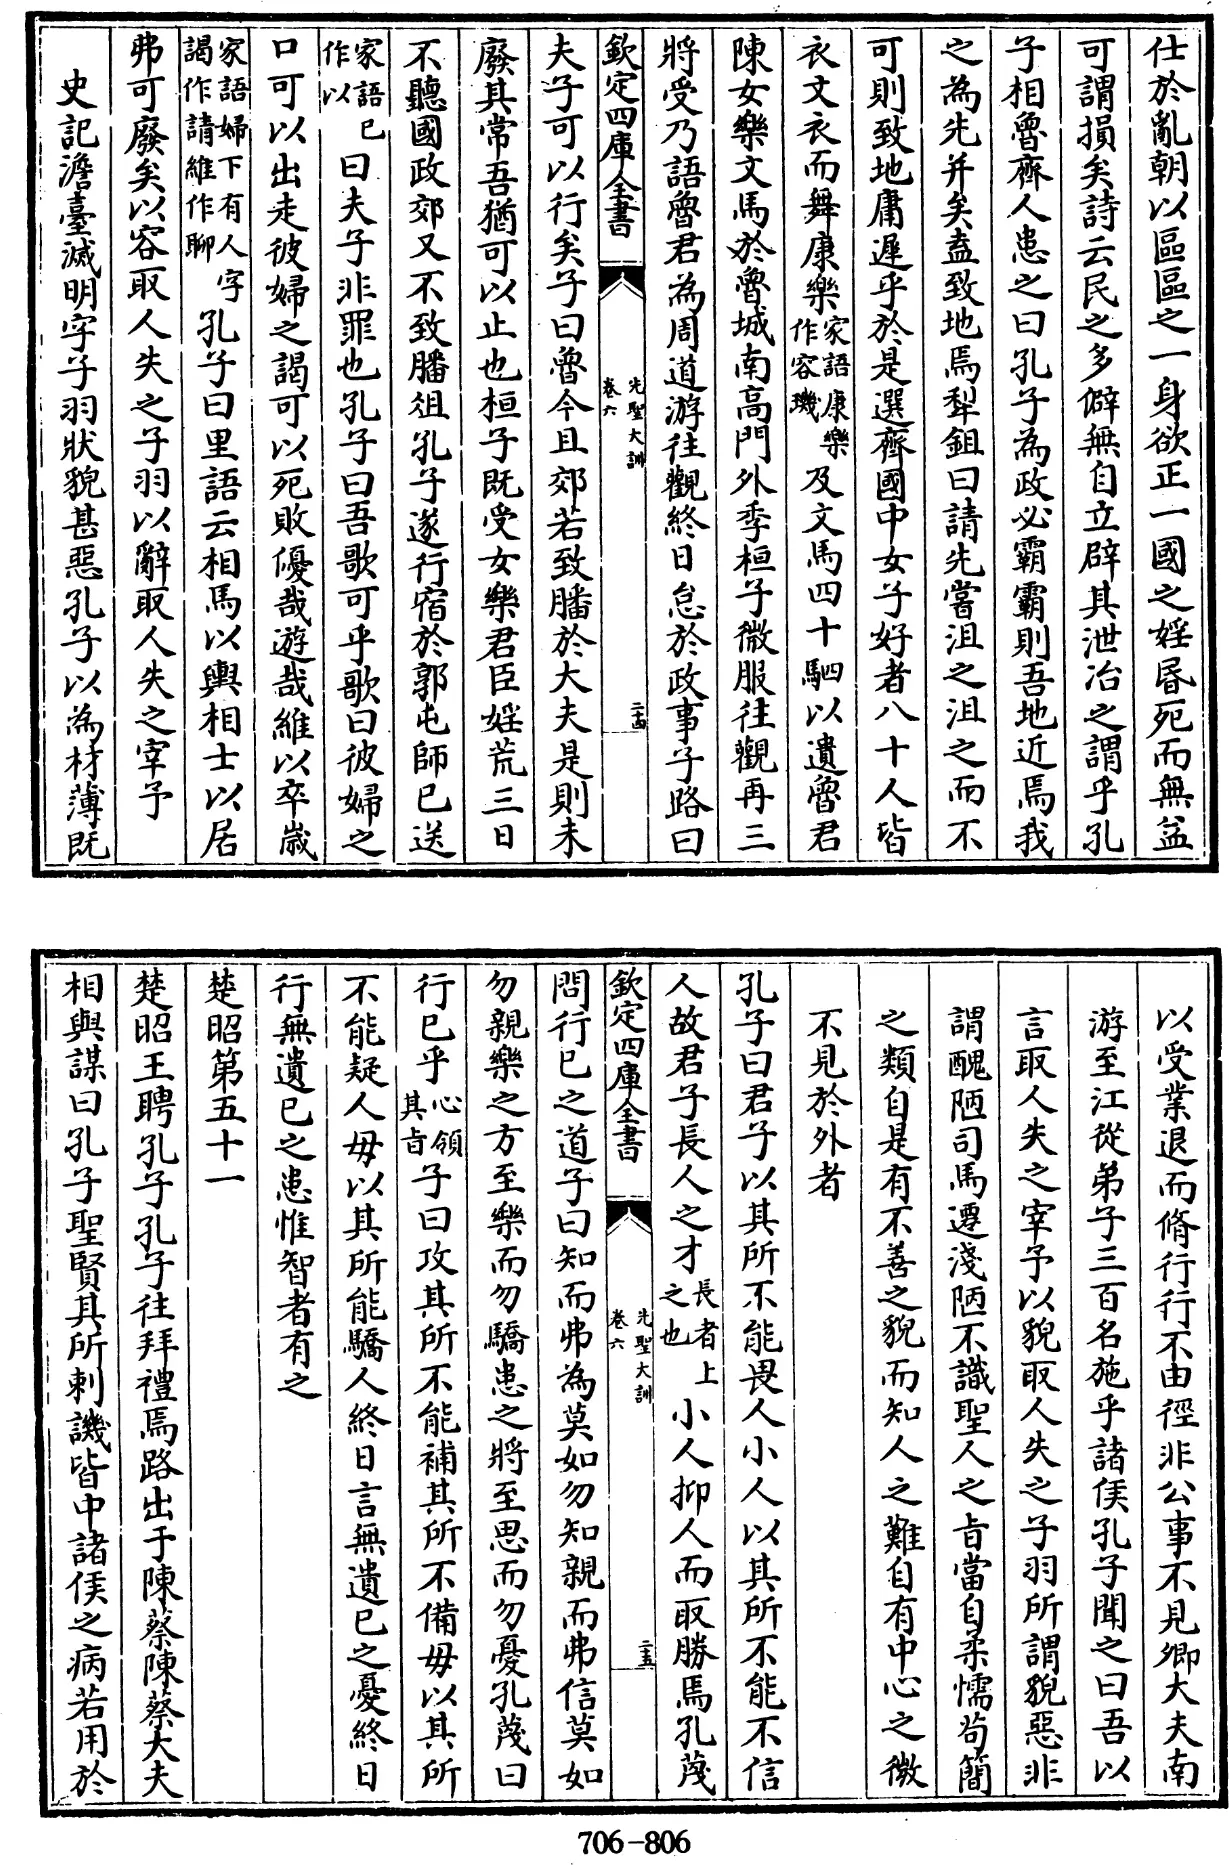 仕於亂朝以區區之一身欲正一國之婬昬死而無益
可謂損矣詩云民之多僻無自立辟其泄冶之謂乎孔
子相魯齊人患之曰孔子為政必霸霸則吾地近焉我
之為先并矣盍致地焉犁鉏曰請先嘗沮之沮之而不
可則致地庸遲乎於是選齊國中女子好者八十人皆
衣文衣而舞康樂家語康樂作容璣及文馬四十駟以遺魯君
陳女樂文馬於魯城南高門外季桓子微服往觀再三
將受乃語魯君為周道游往觀終日怠於政事子路曰
欽定四庫全書 先聖大訓 卷六 二十四
夫子可以行矣子曰魯今且郊若致膰於大夫是則未
廢其常吾猶可以止也桓子既受女樂君臣婬荒三日
不聽國政郊又不致膰俎孔子遂行宿於郭屯師已送
家語已作以曰夫子非罪也孔子曰吾歌可乎歌曰彼婦之
口可以出走彼婦之謁可以死敗優哉遊哉維以卒歳
家語婦下有人字謁作請維作聊孔子曰里語云相馬以輿相士以居
弗可廢矣以容取人失之子羽以辭取人失之宰予
史記澹臺滅明字子羽狀貌甚惡孔子以為材薄既
以受業退而脩行行不由徑非公事不見卿大夫南
游至江從弟子三百名施乎諸侯孔子聞之曰吾以
言取人失之宰予以貌取人失之子羽所謂貌惡非
謂醜陋司馬遷淺陋不識聖人之旨當自柔懦茍簡
之類自是有不善之貌而知人之難自有中心之微
不見於外者
孔子曰君子以其所不能畏人小人以其所不能不信
人故君子長人之才長者上之也小人抑人而取勝焉孔蔑
欽定四庫全書 先聖大訓 卷六 二十五
問行已之道子曰知而弗為莫如勿知親而弗信莫如
勿親樂之方至樂而勿驕患之將至思而勿憂孔蔑曰
行已乎心領其旨子曰攻其所不能補其所不備毋以其所
不能疑人毋以其所能驕人終日言無遺已之憂終日
行無遺已之患惟智者有之
楚昭第五十一
楚昭王聘孔子孔子往拜禮焉路出于陳蔡陳蔡大夫
相與謀曰孔子聖賢其所刺譏皆中諸侯之病若用於
706-806